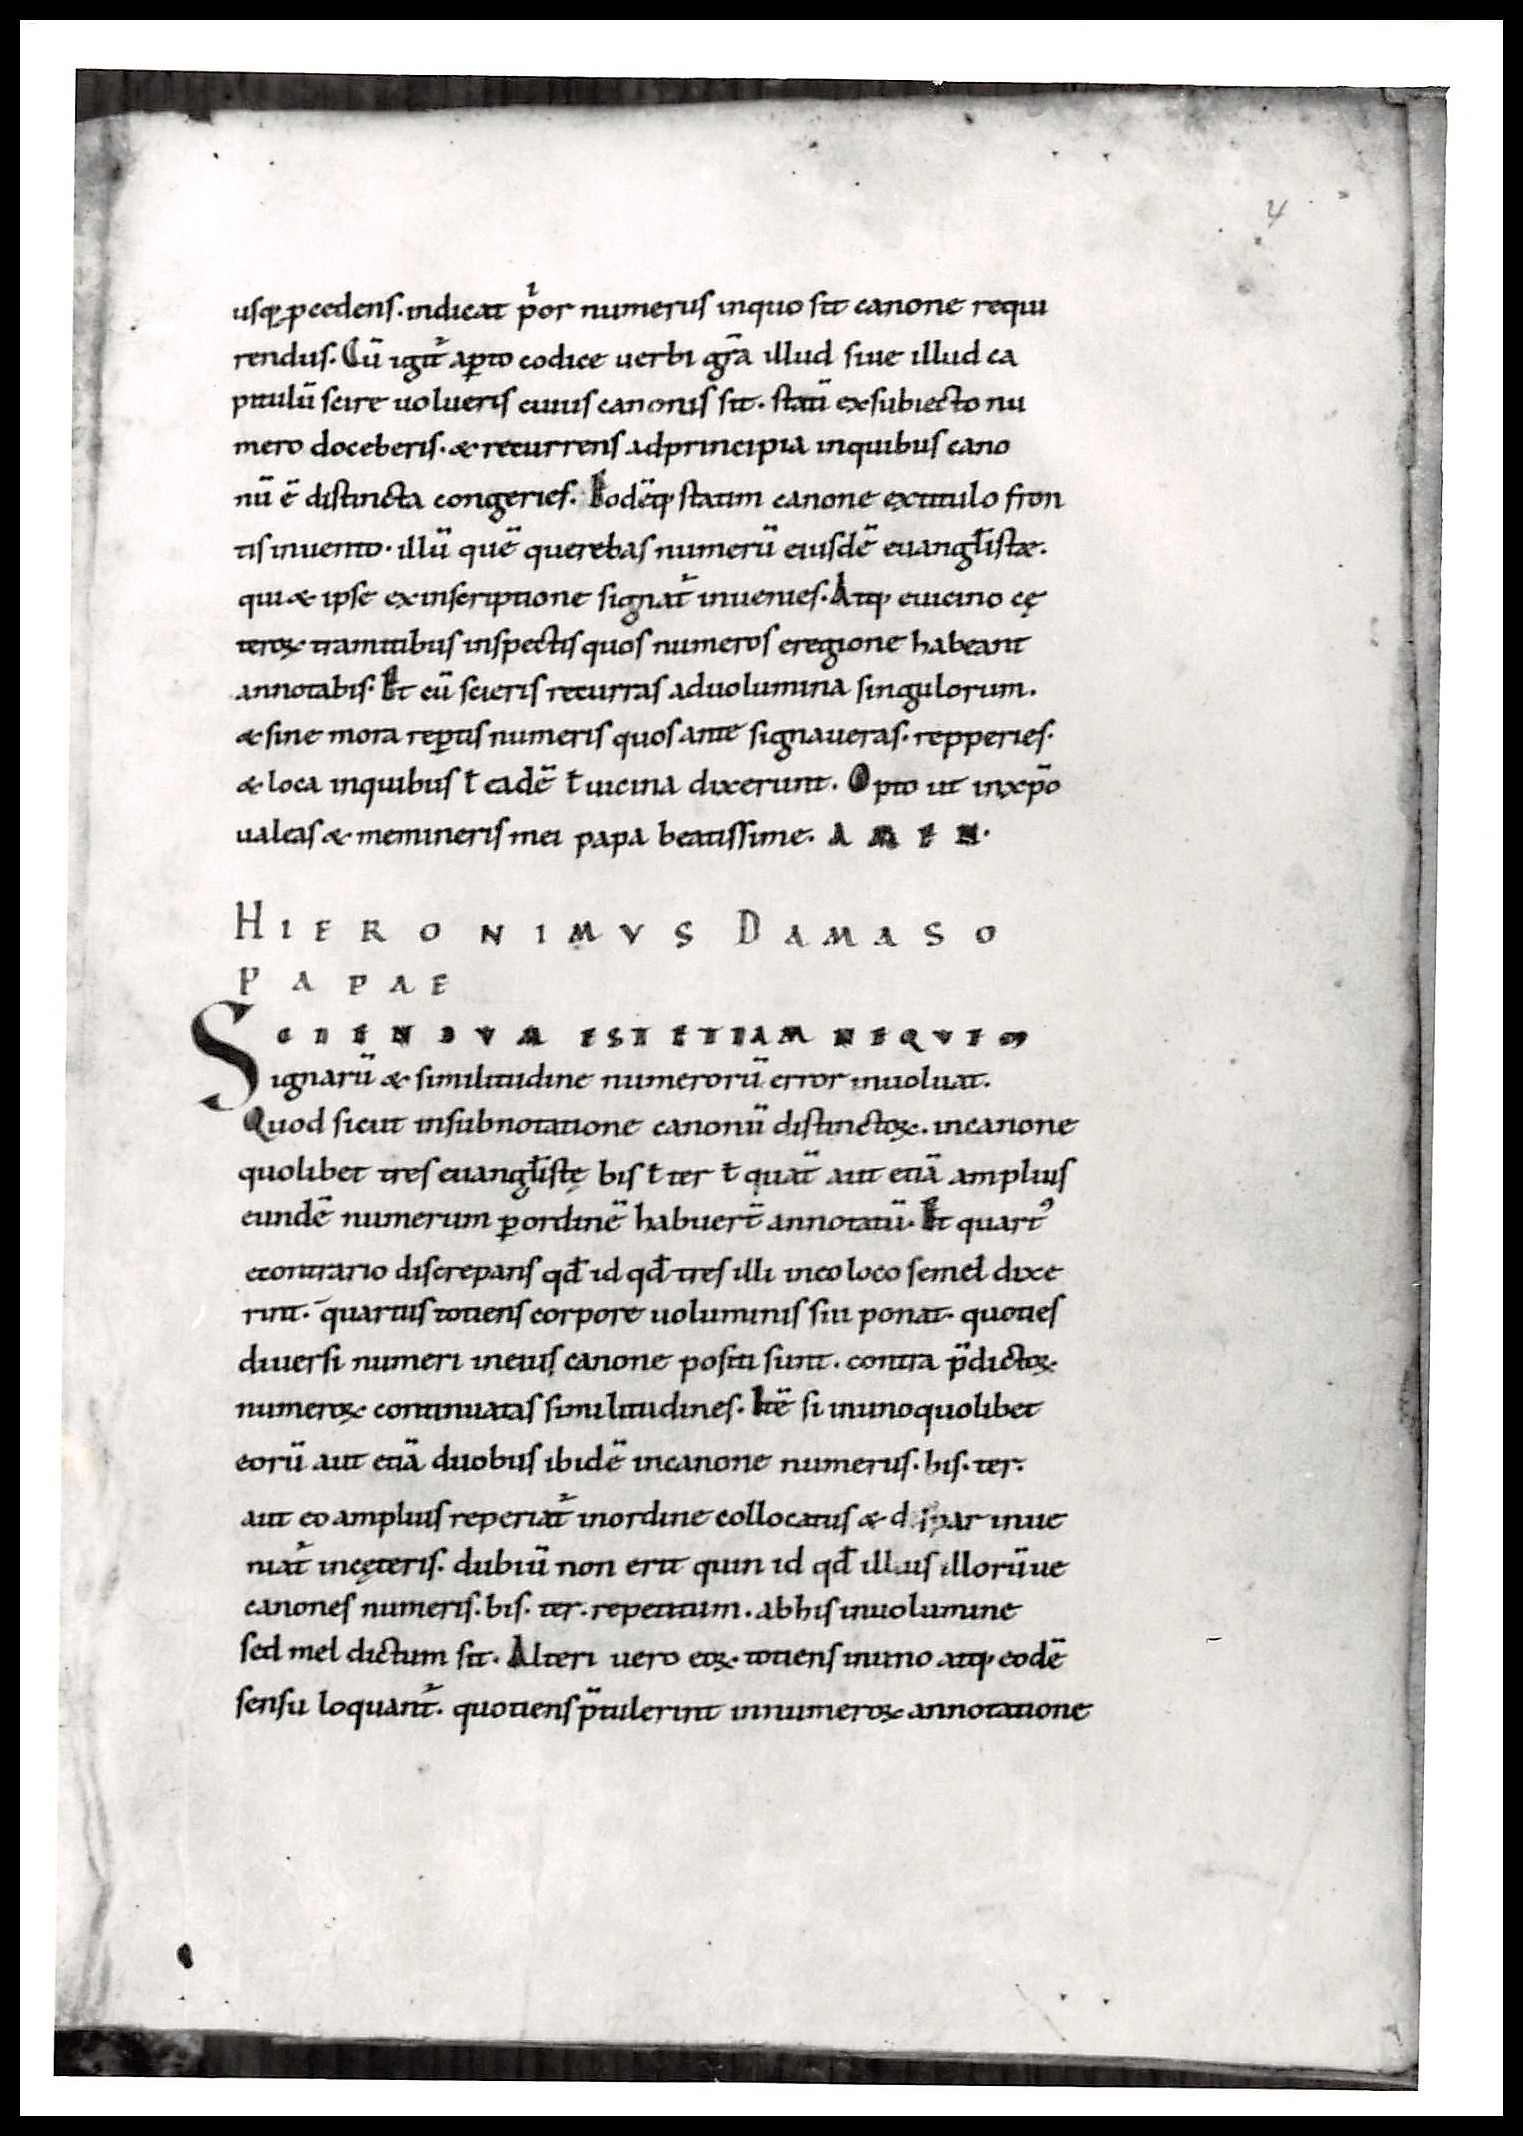 4
usq; pcedens. indicat pͥor numerus inquo sit canone requi
rendus. Cū igit᷑ apto codice uerbi gr̄a illud siue illud ca
pitulū scire uolueris cuius canonis sit. statī exsubiecto nu
mero doceberis. & recurrens adprincipia inquibus cano
nū ē distincta congeries. Eodēq; statim canone extitulo fron
tis inuento. illū quē querebas numerū eiusdē euangl̄istæ.
qui & ipse exinscriptione signat᷑ inuenies. Atq; euicino cę
teroꝝ tramitibus inspectis quos numeros eregione habeant
annotabis. Et cū scieris recurras aduolumina singulorum.
& sine mora reptis numeris quos ante signaueras. repperies.
& loca inquibus ł eadē ł uicina dixerunt. Opto ut inxp̄o
ualeas & memineris mei papa beatissime. AMEN.
HIERONIMVS DAMASO
PAPAE
SCIENDVM EST ETIAM NEQVEM
ignarū & similitudine numerorū error inuoluat.
Quod sicut insubnotatione canonū distinctoꝝ. incanone
quolibet tres euangl̄istę bis ł ter ł quat̄ aut etiā amplius
eundē numerum ꝑordinē habuer̄t annotatū. Et quartꝰ
econtrario discrepans qd̄ id qd̄ tres illi ineo loco semel dixe
rint. quartus totiens corpore uoluminis sui ponat. quoties
diuersi numeri ineius canone positi sunt. contra p̄dictoꝝ
numeroꝝ continuatas similitudines. Itē si inunoquolibet
eorū aut etiā duobus ibidē incanone numerus. bis. ter.
aut eo amplius reperiat᷑ inordine collocatus & dispar inue
niat᷑ incęteris. dubiū non erit quin id qd̄ illius illorūue
canones numeris. bis. ter. repetitum. abhis inuolumine
sed mel dictum sit. Alteri uero eoꝝ totiens inuno atq; eodē
sensu loquant᷑. quotiens p̄tulerint innumeroꝝ annotatione